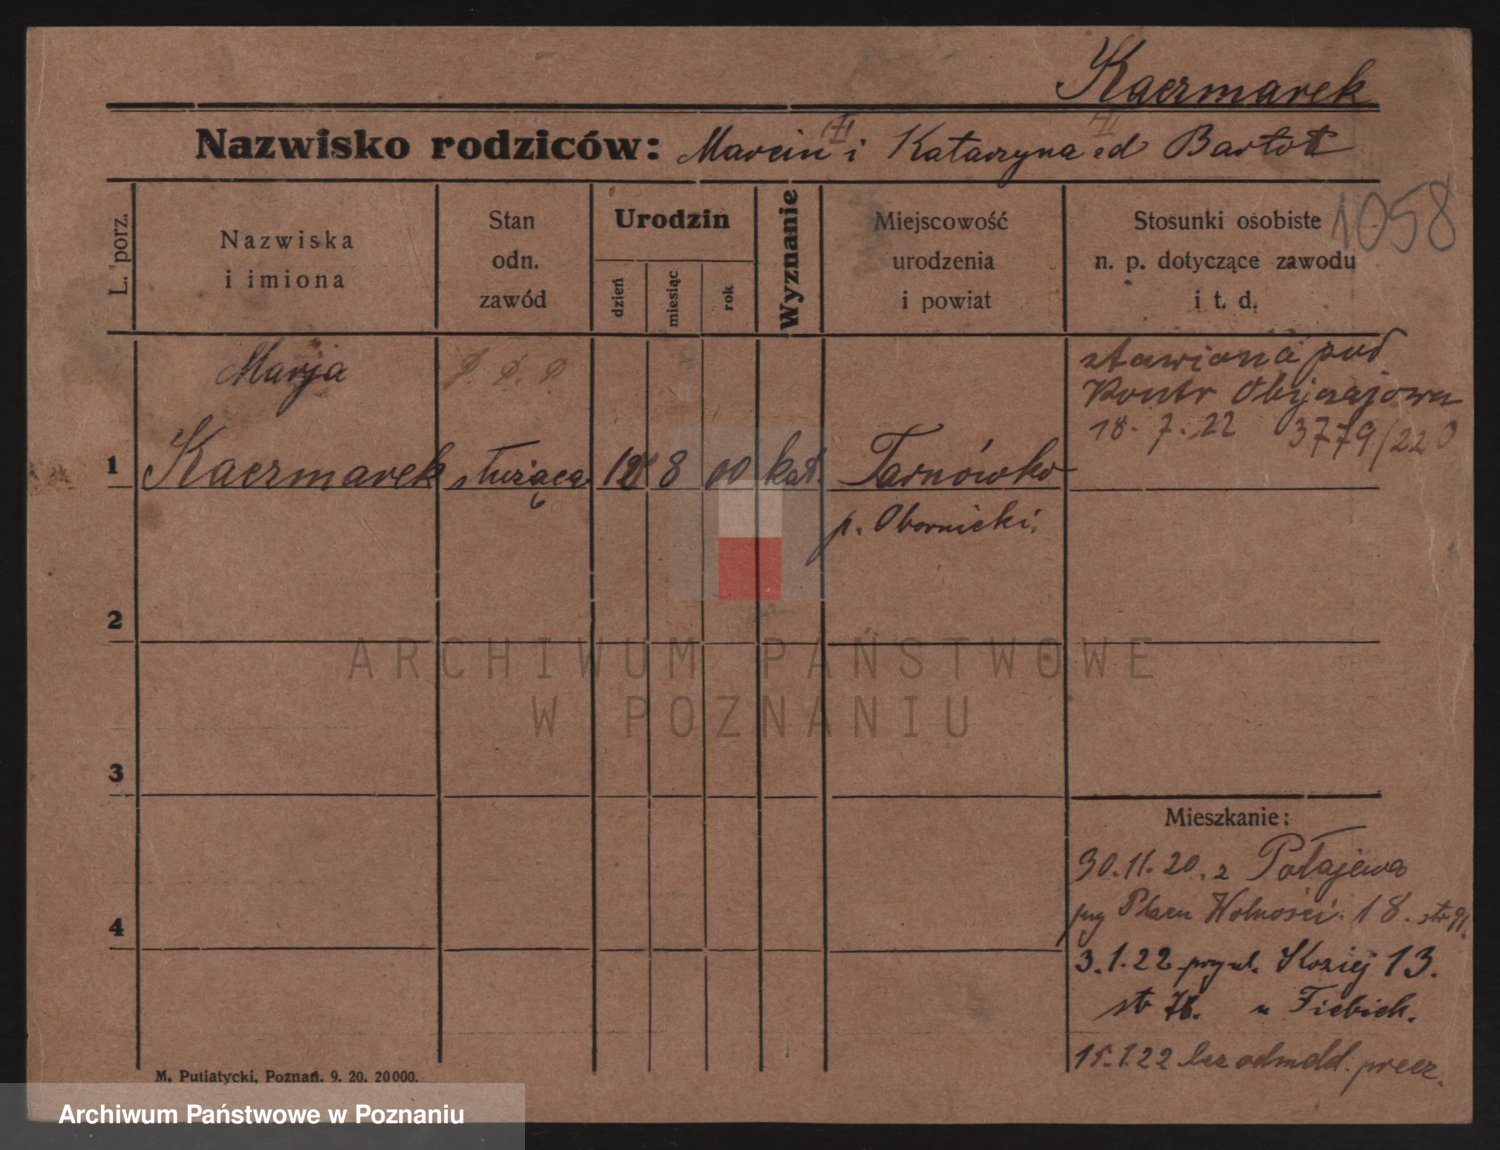 Kaczmarek
Nazwisko rodziców: Marcin i Katarzyna Bartot
L. porz.
Nazwiska
i imiona
Stan
odn.
zawód
Urodzin
dzień
miesiąc
rok
Wyznanie
Miejscowość
urodzenia
i powiat
Stosunki osobiste
n. p. dotyczące zawodu
i t. d.
1058
Marja
stawiona pod
Kontr Obyczajową
18. 7. 22 3779/22 O
1 Kaczmarek służąca 12 8 00 kat. Tarnówko
p. Obornicki.
2
3
4
ARCHIWUM PAŃSTWOWE
W POZNANIU
Mieszkanie:
30.11.20. z Połajewa
Placu Wolności 18.
3.1.22 przy ul. Koziej 13.
u Fiebich.
15.1.22 bez odmeld. precz.
M. Putiatycki, Poznań. 9. 20. 20000.
Archiwum Państwowe w Poznaniu